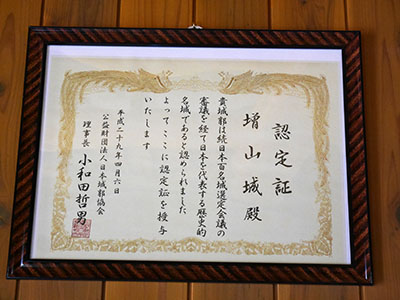 認定証
増山城殿
貴城郭は続日本百名城選定会議の
審議を経て日本を代表する歴史的
名城であると認められました
よってここに認定証を授与
いたします
平成二十九年四月六日
公益財団法人日本城郭協会
理事長 小和田哲男